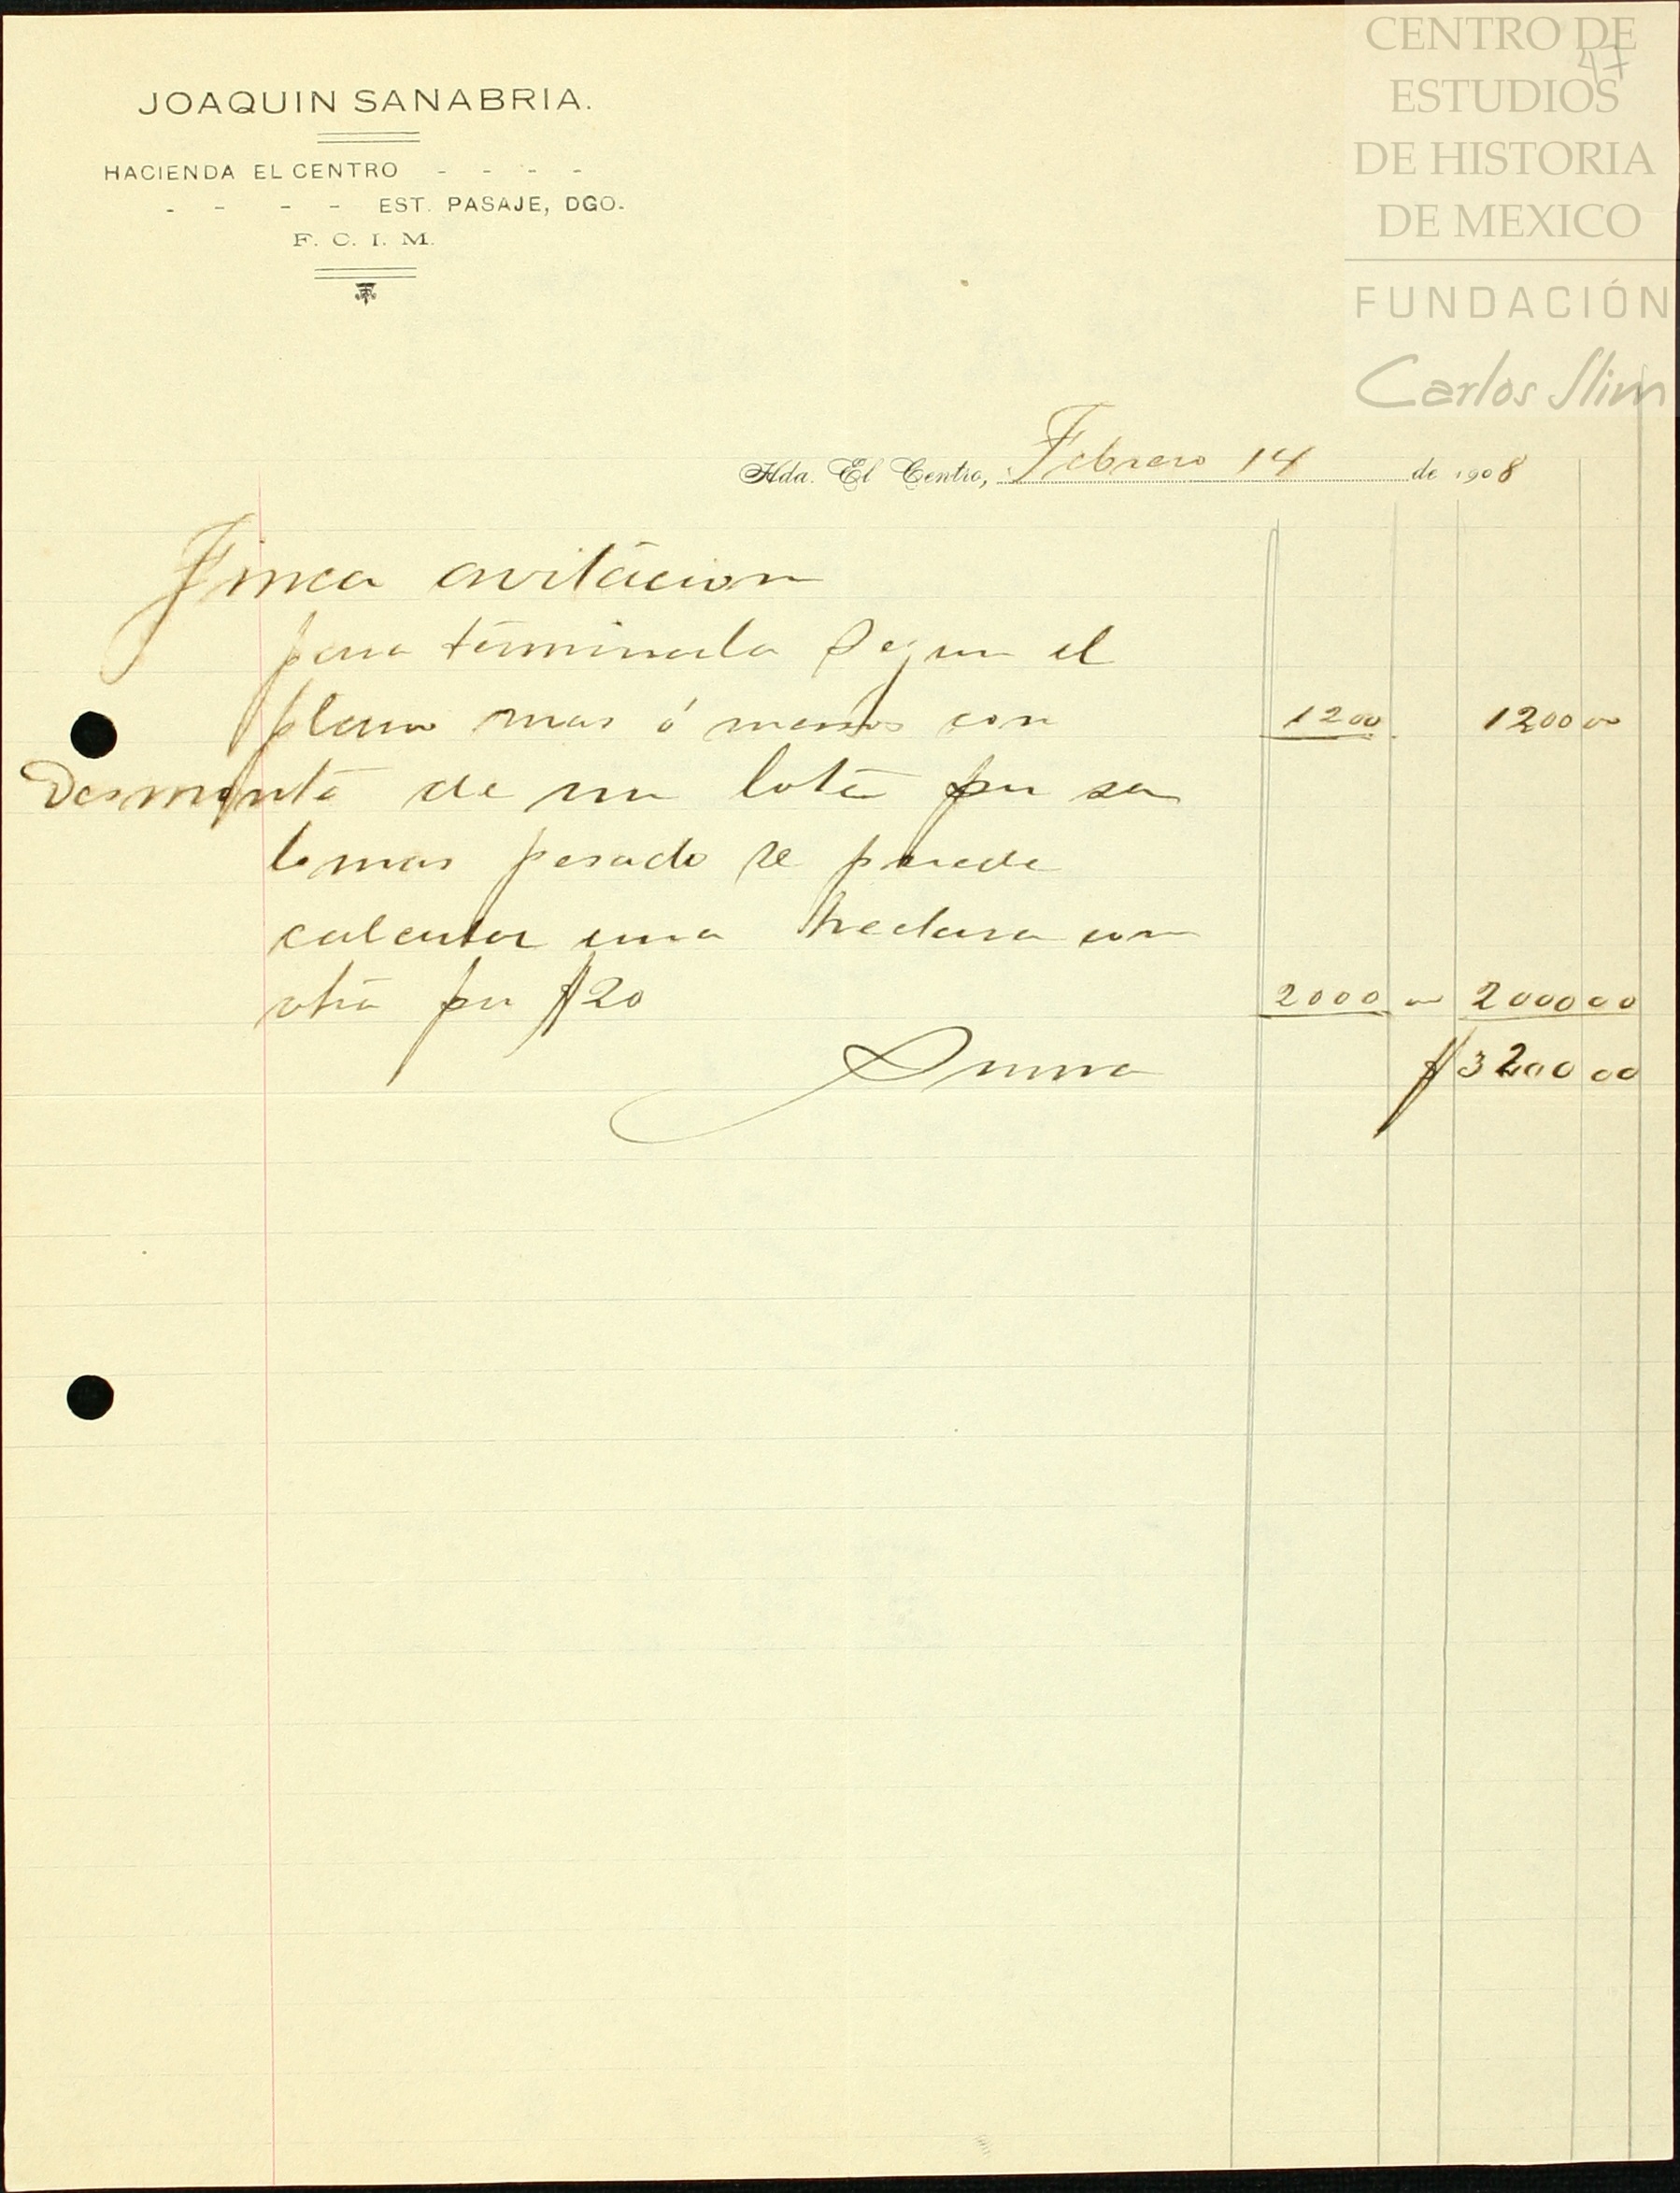 CENTRO DE
ESTUDIOS
DE HISTORIA
DE MEXICO
FUNDACIÓN
Carlos Slim
47
JOAQUIN SANABRIA.
HACIENDA EL CENTRO - - - -
- - - - EST. PASAJE, DGO.
F. C. I. M.
Hda. El Centro, Febrero 14 de 1908
Finca avitacion
para terminarla Segun el
plano mas ó menos con 1200 1200 00
Desmonte de un lote por ser
lo mas pesado se puede
calcular una hectara con
otra por $20 2000 00 2000 00
Suma $3200 00